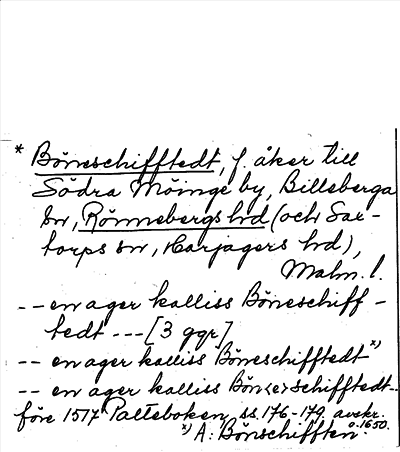 * Böneschifftedt, f. åker till
Södra Möinge by, Billeberga
sn, Rönnebergs hd (och Sar-
torps sn, Harjagers hd),
Malm. l.
-- en ager kalliss Böneschiff-
tedt --- [3 ggr]
-- en ager kalliss Böneschifftedt x)
-- en ager kalliss Bön<e>schifftedt--
före 1517 Palteboken, ss. 176-179. avskr.
o. 1650.
x) A: Bönschifften